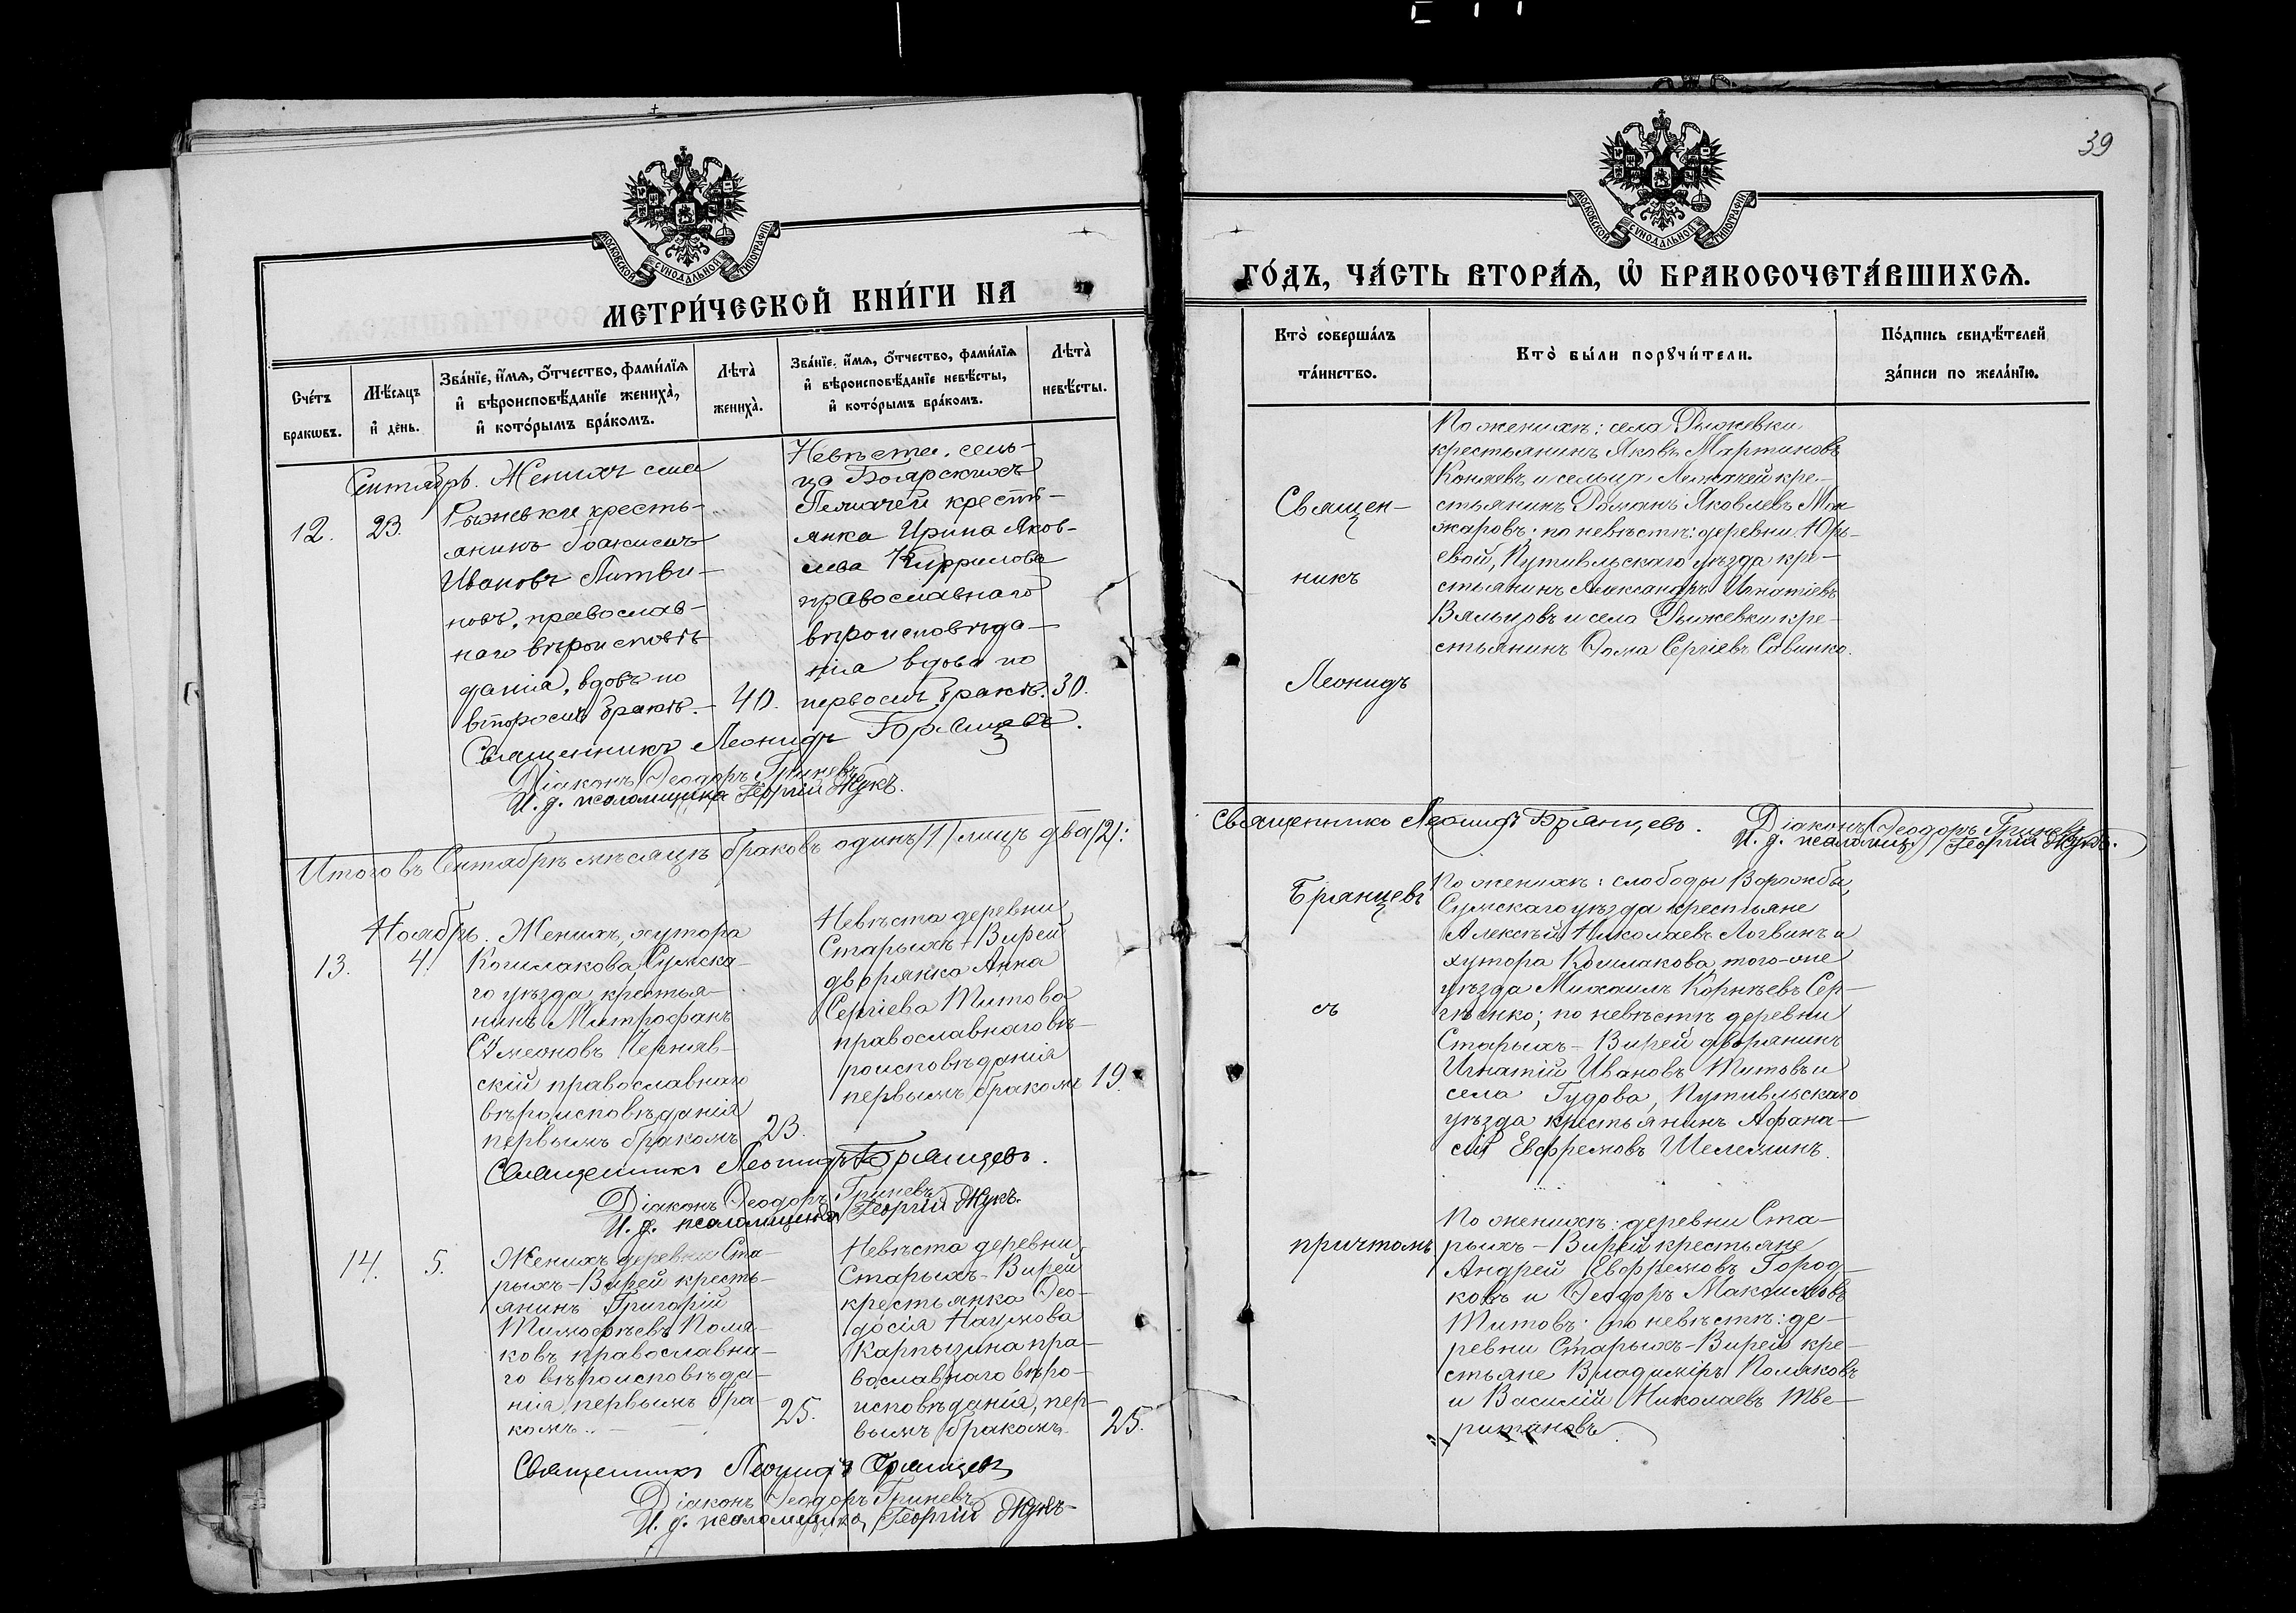 39
МОСКОВСКОЙ СѴНОДАЛЬНОЙ ТИПОГРАФІИ
МЕТРИ́ЧЕСКОЙ КНИ́ГИ НА
Сче́тъ бракѡвъ.
Мѣ́сяцъ и҆ де́нь.
Зва́нїе, и҆́мѧ, ѻ҆́тчество, фами́лїѧ и҆ вѣроисповѣ́данїе жениха̀, и҆ кото́рымъ бра́комъ.
Лѣта̀ жениха̀.
Зва́нїе, и҆́мѧ, ѻ҆́тчество, фами́лїѧ и҆ вѣроисповѣ́данїе невѣ́сты, и҆ кото́рымъ бра́комъ.
Лѣта̀ невѣ́сты.
Сентябрь. Женихъ села
12. 23. Рыжевки кресть-
янинъ
Ивановъ Литви-
новъ, православ-
наго вѣроисповѣ-
данія, вдовъ по
второмъ бракѣ. 40.
Невѣста, сель-
ца Боярскихъ
Лежачей кресть-
янка Ирина Яков-
лева Кириллова
православнаго
вѣроисповѣда-
нія вдова по
первомъ бракѣ. 30.
Священникъ Леонидъ Брянцевъ.
Діаконъ Ѳеодоръ Гриневъ
И. д. псаломщика Георгій Жукъ.
Итого въ Сентябрѣ мѣсяцѣ браковъ одинъ /1/ лицъ два /2/:
Ноябрь. Женихъ, хутора
13. 4. Кошлакова, Сумска-
го уѣзда крестья-
нинъ Митрофанъ
Сѵмеоновъ Черняв-
скій православнаго
вѣроисповѣданія
первымъ бракомъ 23.
Невѣста деревни
Старыхъ-Вирей
дворянка Анна
Сергіева Титова
православнаго вѣ-
роисповѣданія
первымъ бракомъ 19.
Священникъ Леонидъ Брянцевъ.
Діаконъ Ѳеодоръ Гриневъ
И. д. псаломщика Георгій Жукъ.
14. 5. Женихъ деревни Ста-
рыхъ-Вирей кресть-
янинъ Григорій
Тимоѳеевъ Поля-
ковъ православна-
го вѣроисповѣда-
нія, первымъ бра-
комъ. 25.
Невѣста деревни
Старыхъ-Вирей
крестьянка Ѳео-
досія Наумова
Карпызина пра-
вославнаго вѣро-
исповѣданія, пер-
вымъ бракомъ. 25.
Священникъ Леонидъ Брянцевъ
Діаконъ Ѳеодоръ Гриневъ
И. д. псаломщика Георгій Жукъ
МОСКОВСКОЙ СѴНОДАЛЬНОЙ ТИПОГРАФІИ
ГО́ДЪ, ЧА́СТЬ ВТОРА́Ѧ, Ѽ БРАКОСОЧЕТА́ВШИХСѦ.
Кто̀ соверша́лъ та́инство.
Кто̀ бы́ли порꙋчи́тели.
По́дпись свидѣ́телей за́писи по жела́нїю.
Священ-
никъ
Леонидъ
По женихѣ: села Рыжевки
крестьянинъ Яковъ Мартиновъ
Коняевъ и сельца Лежачей кре-
стьянинъ Романъ Яковлевъ Мо-
жаровъ; по невѣстѣ: деревни Юрь-
евой, Путивльскаго уѣзда кре-
стьянинъ Александръ Игнатіевъ
Вяльцовъ и села Рыжевки кре-
стьянинъ Ѳома Сергіевъ Савинко.
Священникъ Леонидъ Брянцевъ. Діаконъ Ѳеодоръ Гриневъ
И. д. псаломщ. Георгій Жукъ.
Брянцевъ
съ
причтомъ
По женихѣ: слободы Ворожбы,
Сумскаго уѣзда крестьяне
Алексѣй Николаевъ Логвинъ и
хутора Кошлакова того-же
уѣзда Михаилъ Корнѣевъ Сер-
гѣенко; по невѣстѣ деревни
Старыхъ-Вирей дворянинъ
Игнатій Ивановъ Титовъ и
села Гудова, Путивльскаго
уѣзда крестьянинъ Афана-
сій Евфремовъ Шелеминъ.
По женихѣ: деревни Ста-
рыхъ-Вирей крестьяне
Андрей Евфремовъ Город-
ковъ и Ѳеодоръ Максимовъ
Титовъ; по невѣстѣ: де-
ревни Старыхъ-Вирей кре-
стьяне Владиміръ Поляковъ
и Василій Николаевъ Тве-
ритиновъ